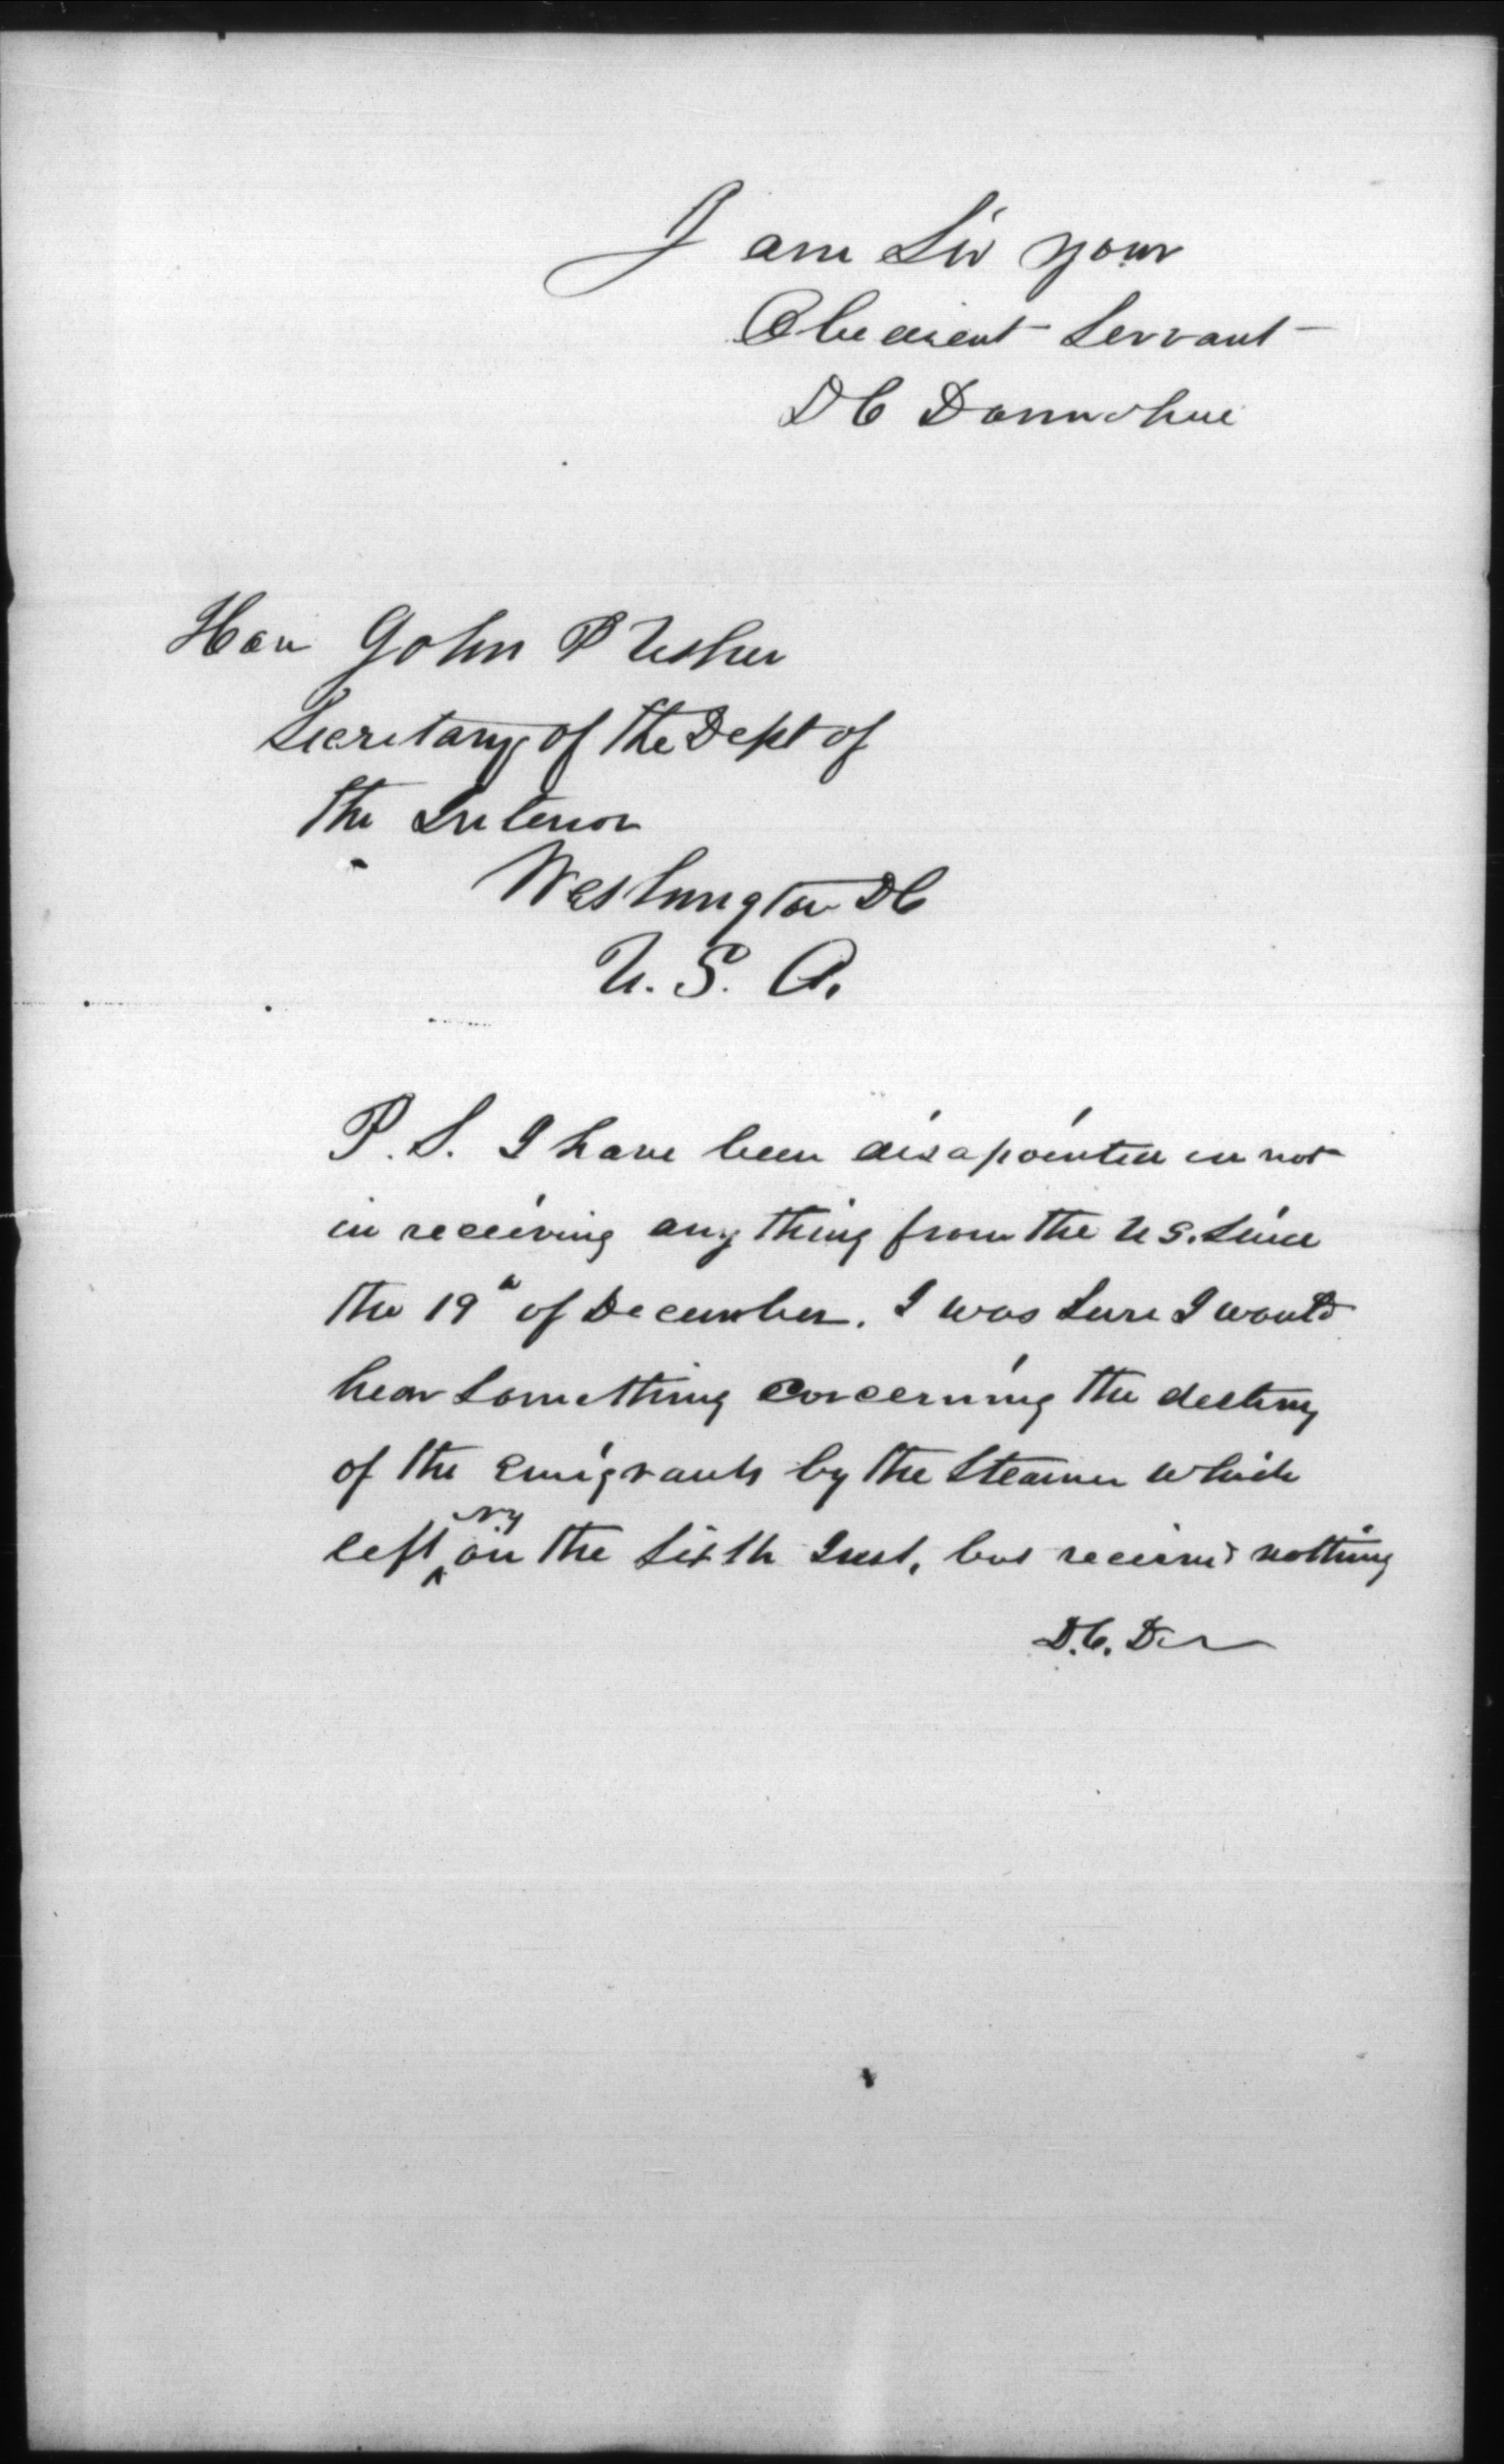 I am Sir your
Obedient Servant
D C Donnohue
Hon John P Usher
Secretary of the Dept of
the Interior
Washington DC
U. S. A.
P. S. I have been disapointed in not
in receiving any thing from the U S. Since
the 19th of December. I was Sure I would
hear Something Concerning the destiny
of the Emigrants by the Steamer which
left NY on the Sixth Inst, but received nothing
D. C. D